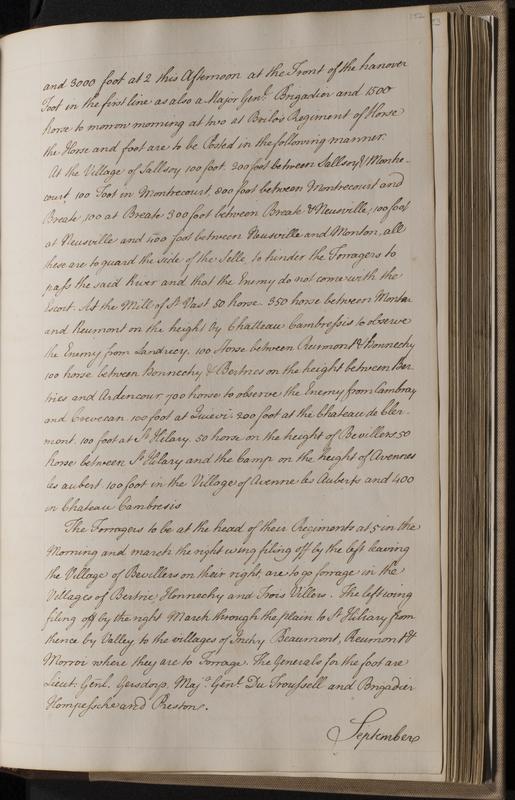 and 3000 foot at 2 this Afternoon at the Front of the hanover
Foot in the first line as also a Major Genl. Brigadier and 1500
horse to morow morning at two at Brilo's Regiment of Horse
the Horse and foot are to be Posted in the following manner.
At the Village of Sallsoy 100 foot. 300 foot between Sallsoy & Montre-
court, 100 Foot in Montrecourt, 800 foot between Montrecourt and
Breate, 100 at Breate 300 foot between Breate & Neusville, 100 foot
at Neusville and 400 foot between Neusville and Monton, all
these are to guard the side of the Selle, to hinder the Forragers to
pass the said River and that the Enemy do not come with the
Escort. At the Mill of St Vast 50 horse. 350 horse between Montai
and Reumont on the height by Chatteau Cambressis to observe
the Enemy from Landrecy. 100 Horse between Reumont & Honnechy
100 horse between Honnechy & Bertries on the height between Ber-
tries and Ardencour 700 horse to observe the Enemy from Cambray
and Crevecan. 100 foot at Quievi. 200 foot at the Chateau de Cler-
mont. 100 foot at St Hilary. 50 horse on the height of Bevillers 50
horse between St Hilary and the Camp on the height of Avennes
les aubert. 100 foot in the Village of Avenne les Auberts and 400
in Chateau Cambresis
The Forragers to be at the head of their Regiments at 5 in the
Morning and march the right wing filing off by the left leaving
the Village of Bevillers on their right, are to go forrage in the
Villages of Bertrie, Honnechy and Trois Villers. The left wing
filing off by the right March through the plain to St Hilary from
thence by Valley to the villages of Inchy Beaumont, Reumont &
Morroi where they are to Forrage. The Generals for the foot are
Lieut: Genl. Gersdorp, Majr. Genl. Du Troussell and Brigadier
Hompessche and Preston.
September